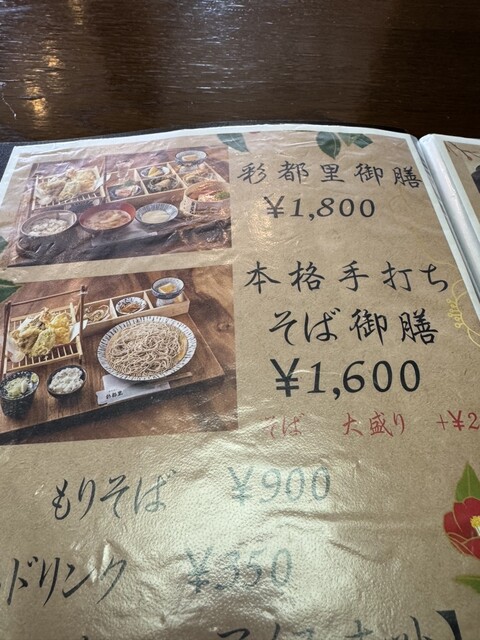 彩都里御膳
¥1,800
本格手打ち
そば御膳
¥1,600
そば 大盛り +¥2
もりそば ¥900
ドリンク ¥350